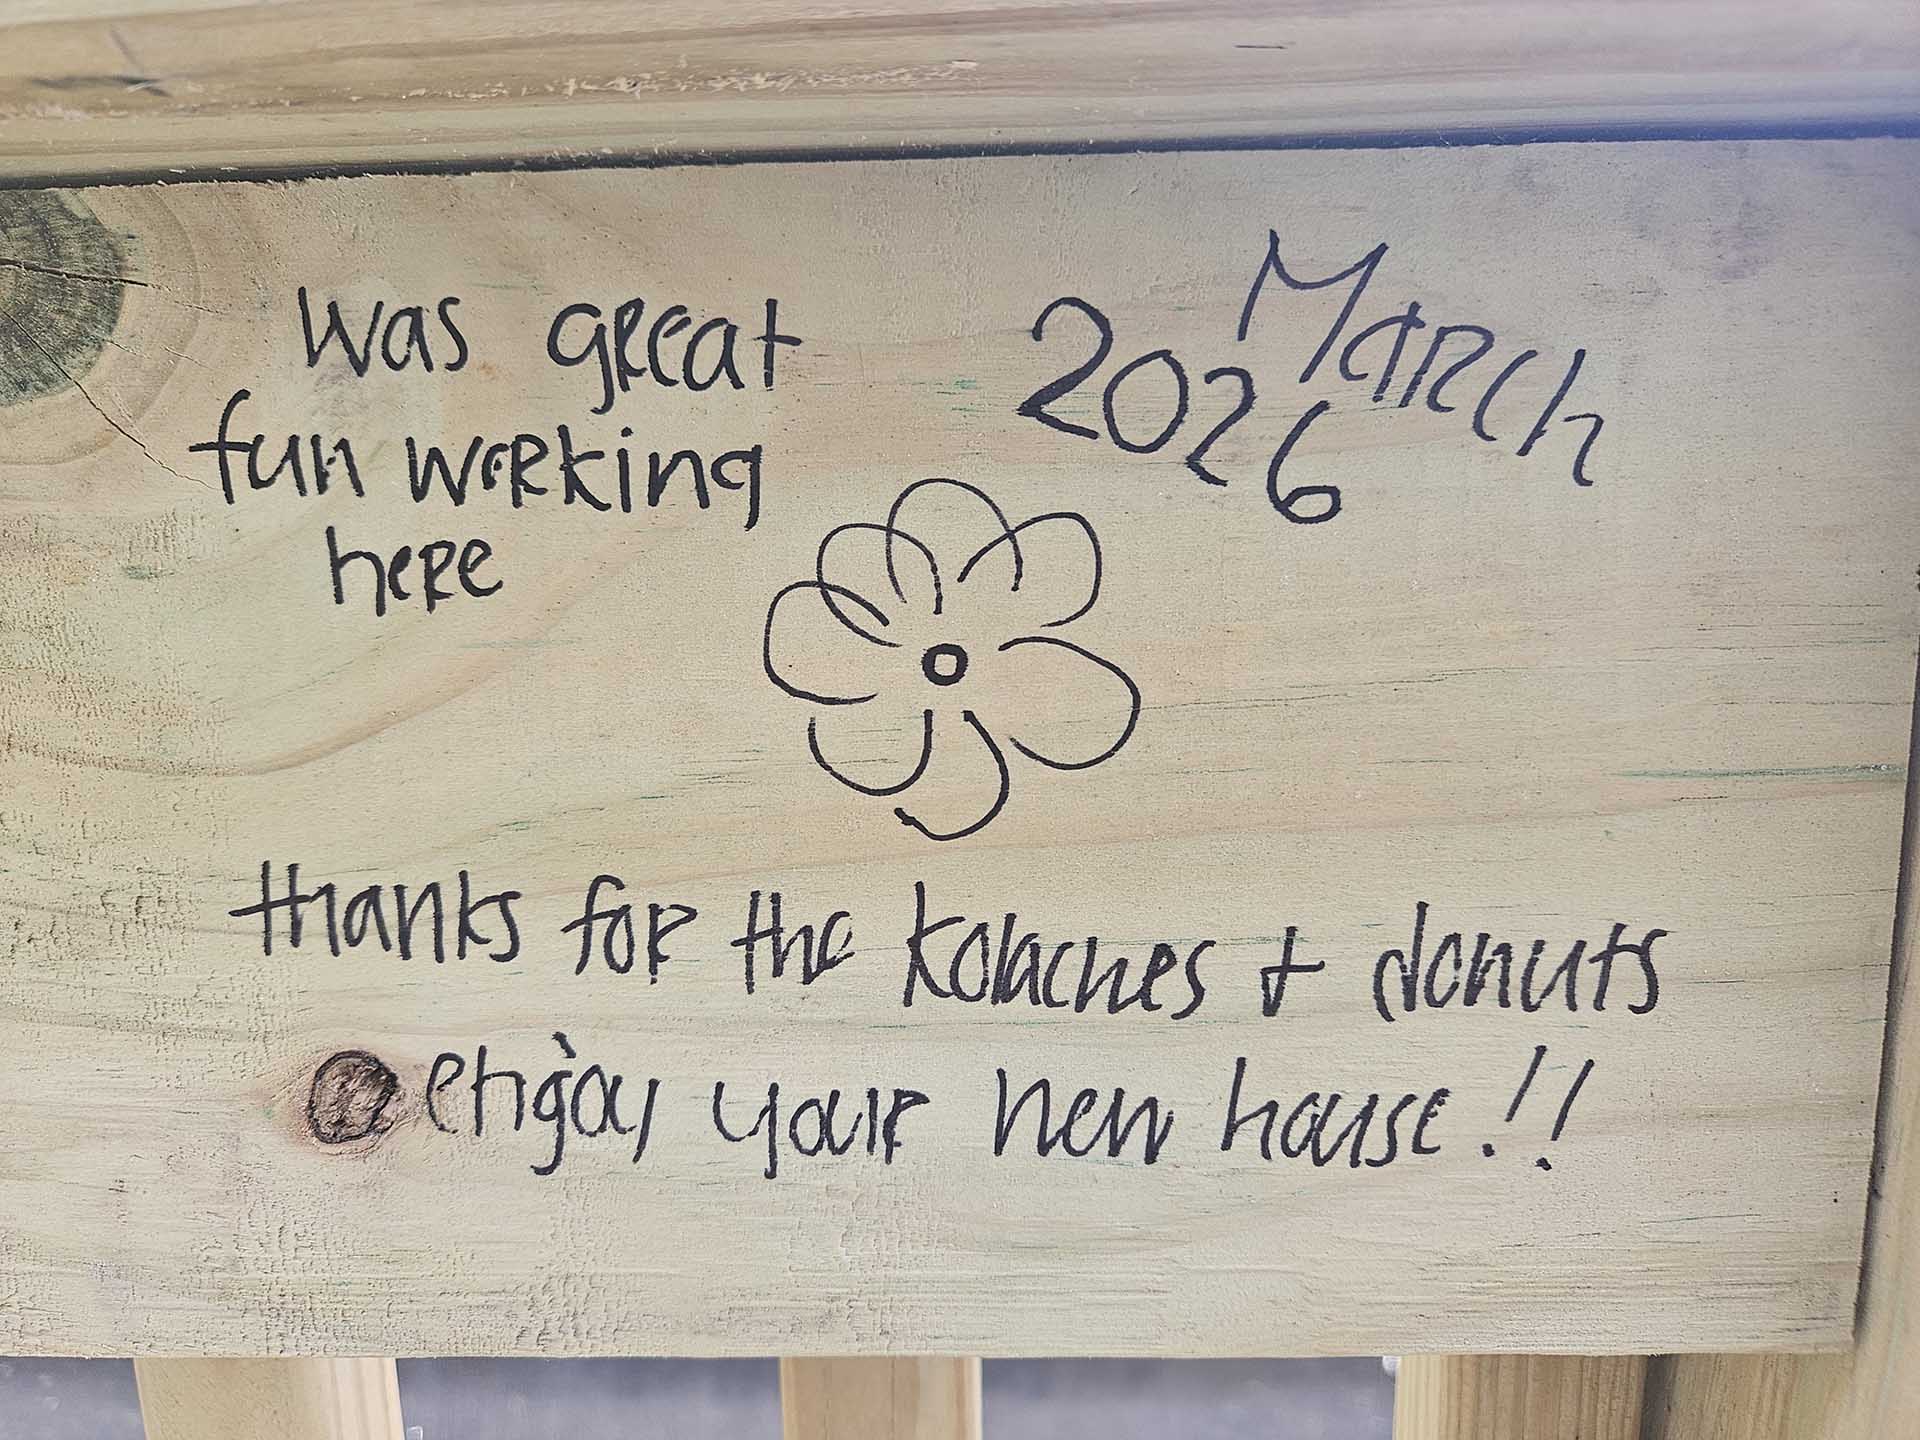 was great
fun working
here
March
2026
thanks for the kolaches + donuts
engoy your new house!!